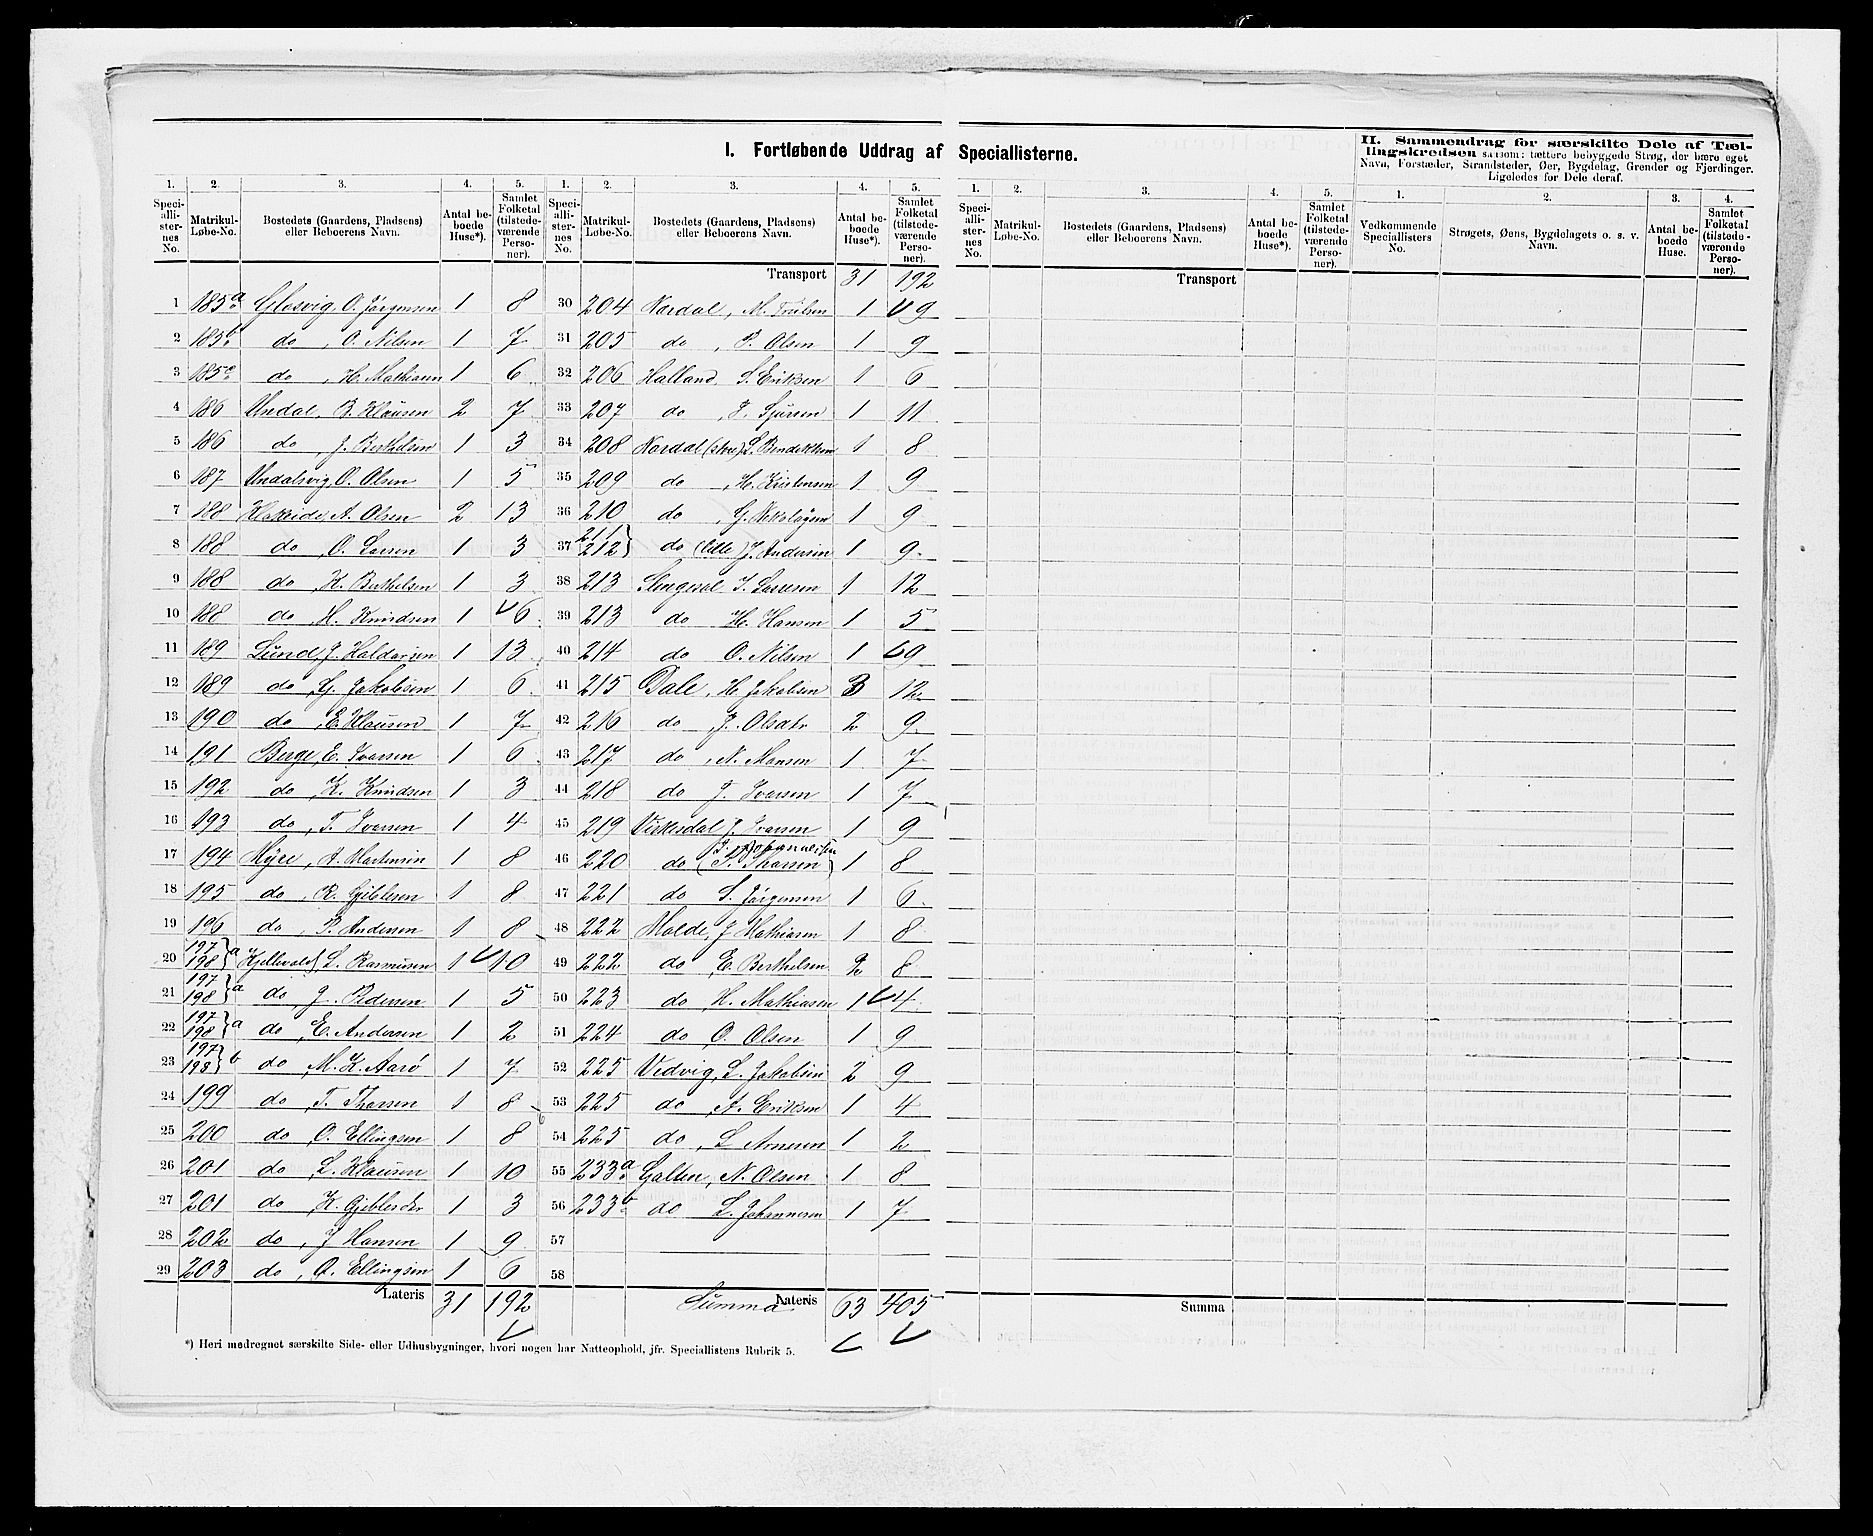 I. Fortløbende Uddrag af Speciallisterne.
II. Sammendrag for særskilte Dele af Tæl-
lingskredsen saasom: tættere bebyggede Strøg, der bære eget
Navn, Forstæder, Strandsteder, Øer, Bygdelag, Grender og Fjerdinger.
Ligeledes for Dele deraf.
1. 2. 3. 4. 5. 1. 2. 3. 4. 5. 1. 2. 3. 4. 5. 1. 2. 3. 4.
Speci-allister-nes No. Matrikul-Løbe-No. Bostedets (Gaardens, Pladsens) eller Beboerens Navn. Antal be-boede Huse*). Samlet Folketal (tilstede-værende Perso-ner).
Speci-allister-nes No. Matrikul-Løbe-No. Bostedets (Gaardens, Pladsens) eller Beboerens Navn. Antal be-boede Huse*). Samlet Folketal (tilstede-værende Perso-ner).
Speci-allister-nes No. Matrikul-Løbe-No. Bostedets (Gaardens, Pladsens) eller Beboerens Navn. Antal be-boede Huse*). Samlet Folketal (tilstede-værende Perso-ner).
Vedkommende Speciallisters No. Strøgets, Øens, Bygdelagets o. s. v. Navn. Antal be-boede Huse. Samlet Folketal (tilstede-værende Perso-ner).
1 185a Glosvig, O. Jørgensen 1 8
2 185b do, O. Nilsen 1 7
3 185c do, H. Mathiasen 1 6
4 186 Undal, B. Klausen 2 7
5 186 do, J. Berthelsen 1 3
6 187 Undalsvig, O. Olsen 1 5
7 188 Klakeide, A. Olsen 2 13
8 188 do, O. Larsen 1 3
9 188 do, K. Berthelsen 1 3
10 188 do, M. Knudsen 1 6
11 189 Lund, J. Haldorsen 1 13
12 189 do, G. Jakobsen 1 6
13 190 do, E. Klausen 1 7
14 191 Berge, E. Ivarsen 1 6
15 192 do K. Knudsen 1 3
16 193 do, T. Ivarsen 1 4
17 194 Myre, A. Martensen 1 8
18 195 do, R. Gjiblesen 1 8
19 196 do, P. Andersen 1 8
20 197 198 } a L. Rasmusen 1 10
21 197 198 } a do J. Pedersen 1 5
22 197 198 } a do, E. Andersen 1 2
23 197 198 } b do, M. K. Aarø 1 7
24 199 do, T. Thorsen 1 8
25 200 do, O. Ellingsen 1 8
26 201 do, L. Klausen 1 10
27 201 do K. Gjiblesdtr 1 3
28 202 do, J Hansen 1 9
29 203 do, O. Ellingsen 1 6
Lateris 31 192
Transport 31 192
30 204 Nordal, M. 1 9
31 205 do, P. Olsen 1 9
32 206 Halland, S. Eriksen 1 6
33 207 do, T. Sjursen 1 11
34 208 Nordal (store) L. Bendiktsen 1 8
35 209 do, H. Kristensen 1 9
36 210 do, G. Nikolaysen 1 9
37 211 212 } do (lille) J. Andersen 1 9
38 213 I. Larsen 1 12
39 213 do H. Hansen 1 5
40 214 do O. Nilsen 1 9
41 215 Dale, H. Jakobsen 3 12
42 216 do J. Olsdtr 2 9
43 217 do, N. Monsen 1 7
44 218 do J. Ivarsen 1 7
45 219 Virkesdal J. Ivarsen 1 9
T. Johannesen
46 220 do (S. Thorsen) 1 8
47 221 do S. Jørgensen 1 6
48 222 Molde, J Mathiasen 1 8
49 222 do, E. Berthelsen 2 8
50 223 do, H. Mathiasen 1 4
51 224 do, O. Olsen 1 9
52 225 Vedvig, L. Jakobsen 2 9
53 225 do, A. Eriksen 1 4
54 225 do, L Arnesen 1 2
55 233a Galten, N. Olsen 1 8
56 233b do L. Johannesen 1 7
57
58
Lateris Summa 63 405
Transport
Summa
*) Heri medregnet særskilte Side- eller Udhusbygninger, hvori nogen har Natteophold, jfr. Speciallistens Rubrik 5.